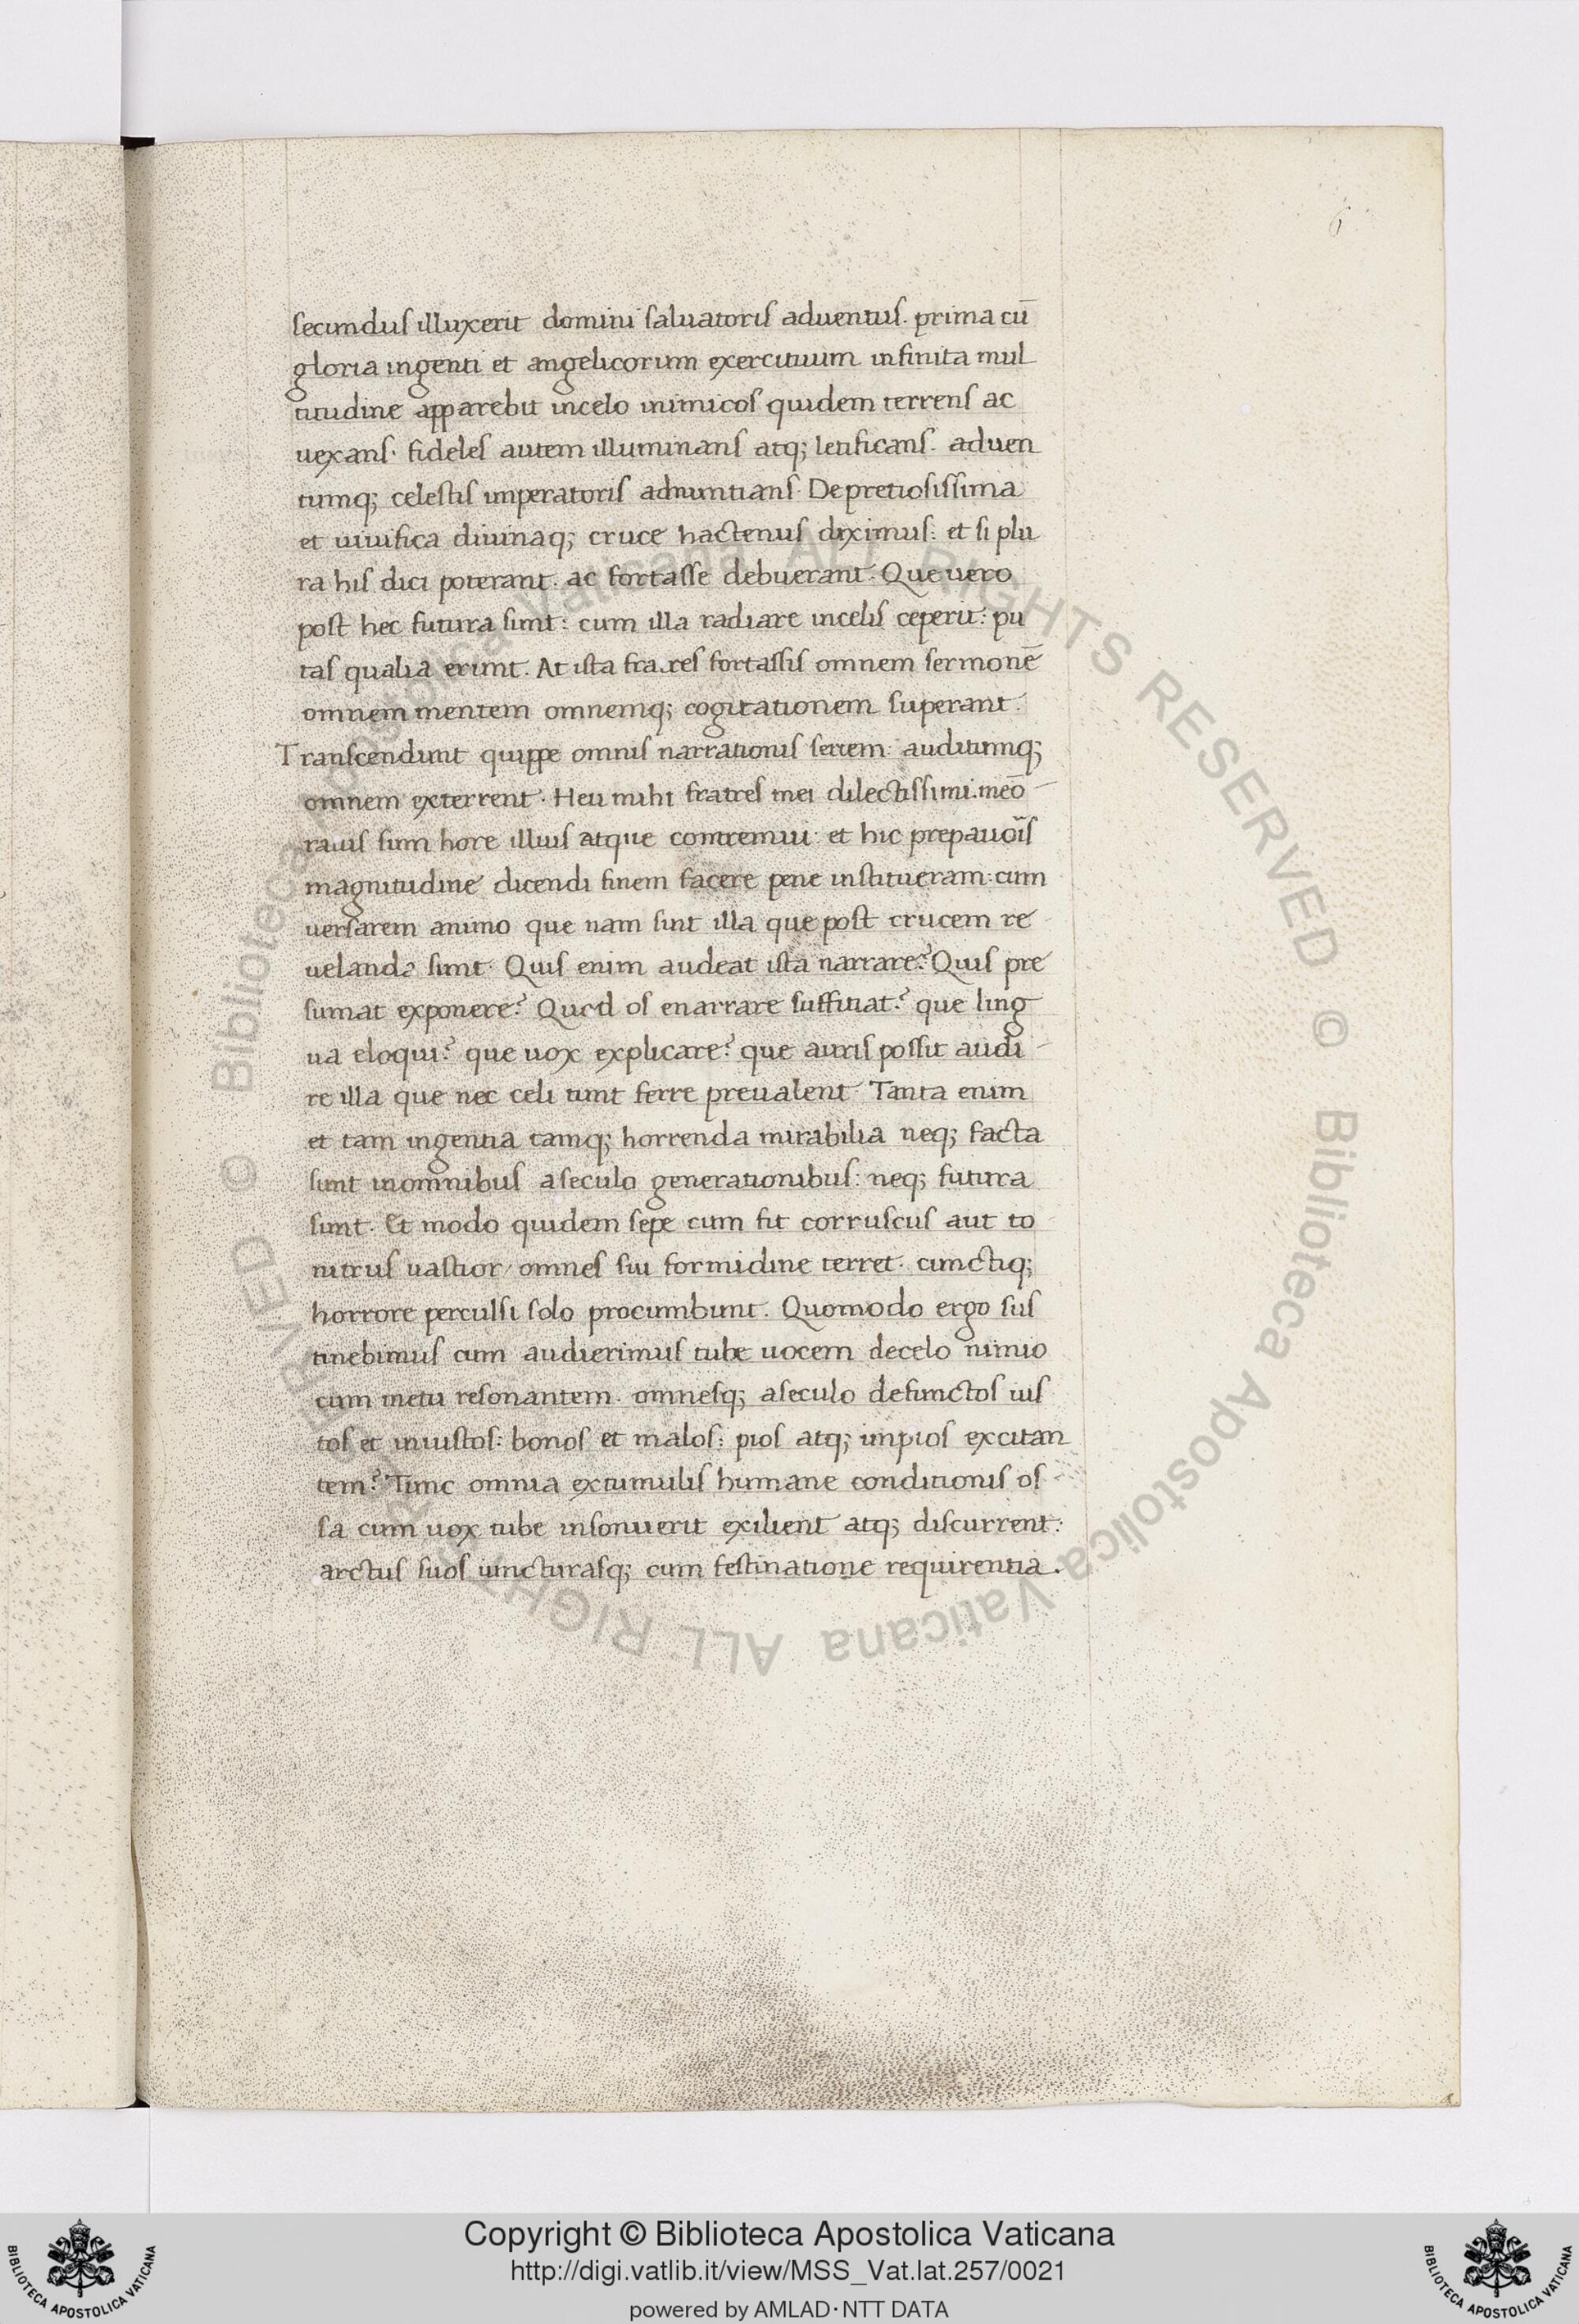 6
secundus illuxerit domini saluatoris aduentus. prima cū
gloria ingenti et angelicorum exercituum infinita mul
titudine apparebit incelo inimicos quidem terrens ac
uexans. fideles autem illuminans atq; letificans. aduen
tumq; celestis imperatoris adnuntians. De pretiosissima
et uiuifica diuinaq; cruce hactenus diximus: et si plu
ra his dici poterant. ac fortasse debuerant. Que uero
post hec futura sunt: cum illa radiare incelis ceperit: pu
tas qualia erunt. At ista fratres fortassis omnem sermonē
omnem mentem omnemq; cogitationem superant.
Transcendunt quippe omnis narrationis seriem: auditumq;
omnem exterrent. Heu mihi fratres mei dilectissimi. meō
ratus sum hore illius atque contremui: et hic prepauoīs
magnitudine dicendi finem facere pene institueram: cum
uersarem animo que nam sint illa que post crucem re
uelanda sunt. Quis enim audeat ista narrare? Quis pre
sumat exponere? Quod os enarrare suffitiat? que ling
ua eloqui? que uox explicare? que auris possit audi
re illa que nec celi tunt ferre preualent. Tanta enim
et tam ingentia tamq; horrenda mirabilia neq; facta
sunt inomnibus aseculo generationibus: neq; futura
sunt. Et modo quidem sepe cum fit corruscus aut to
nitrus uastior, omnes sui formidine terret. cunctiq;
horrore perculsi solo procumbunt. Quomodo ergo sus
tinebimus cum audierimus tube uocem decelo nimio
cum metu resonantem. omnesq; aseculo defunctos ius
tos et iniustos: bonos et malos: pios atq; impios excitan
tem? Tunc omnia extumulis humane conditionis os
sa cum uox tube insonuerit exilient atq; discurrent:
arctus suos iuncturasq; cum festinatione requirentia.
© Biblioteca Apostolica Vaticana ALL RIGHTS RESERVED © Biblioteca Apostolica Vaticana ALL RIGHTS RESERVED
Copyright © Biblioteca Apostolica Vaticana
http://digi.vatlib.it/view/MSS_Vat.lat.257/0021
powered by AMLAD·NTT DATA
BIBLIOTECA APOSTOLICA VATICANA
BIBLIOTECA APOSTOLICA VATICANA